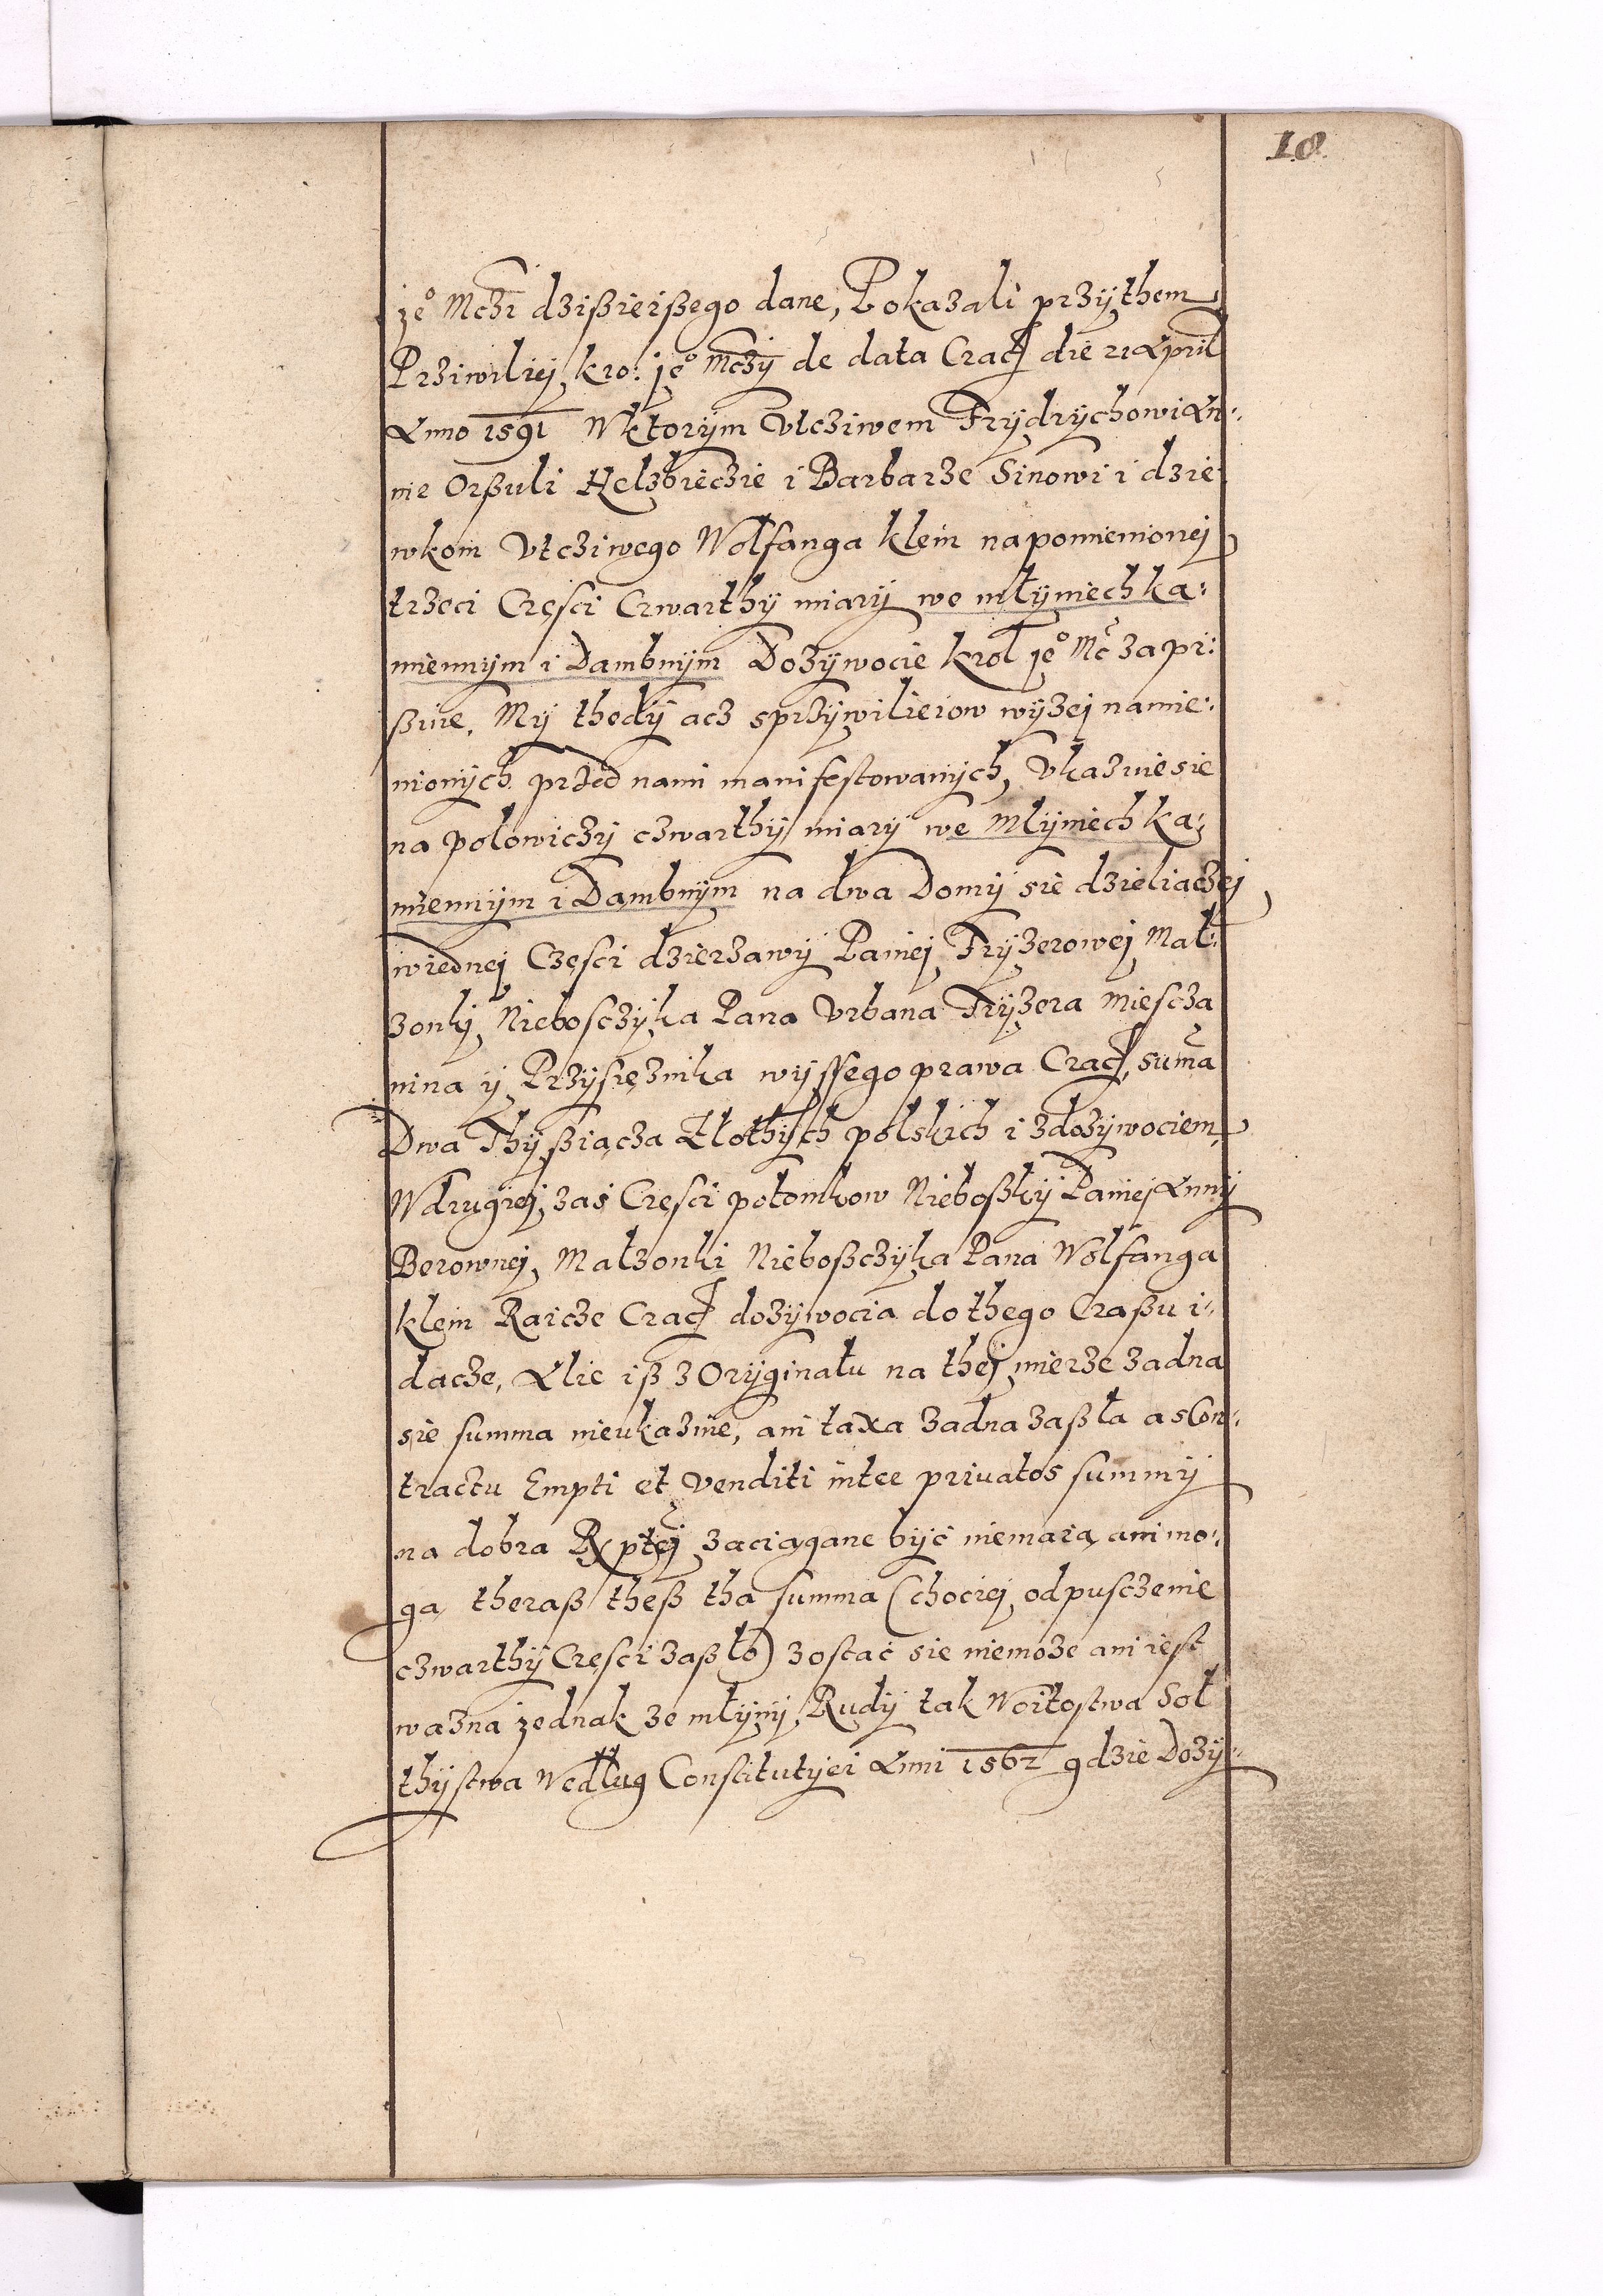 18
je° Mczi dzißieißego dane, Pokazali przythem
Prziwiliej kro: je° Mczy de data Crac die 21 April
Anno 1591 Wktorym Vtcziwem Frydrychowi An:
nie Orßuli Helzbieczie i Barbarze Sinowi i dzie
wkom Vtcziwego Wolfanga klein napomienionej
trzeci Cręsci Crwarthy miary we młyniech ka:
miennym i Dambnym Dozywocie krol je° Mć zapi:
ßuie. My thedy acz sprzywilieiow wyzej namie:
nionych przed nami manifestowanych, Vkazuie sie
na polowiczy czwarthy miary we Młyniech ka:
miennym i Dambnym na dwa Domy sie dzieliaczej
wiednej Częsci dzierzawy Paniej Fryzerowej Mał:
zonky Nieboscyka Pana Vrbana Fryzera miescza
nina y Przysięznika wyssego prawa Crac, suma
Dwa Thyßiącza Złothych polskich i zdozywociem,
Wdrugiej zaś Cręsci potomkow Nieboßky Paniej Anny
Berownej, Małzonki Nieboßczyka Pana Wolfanga
klein Raicze Crac dozywocia do thego Craßu i:
dacze, Alie iß z Oryginału na thej mierze zadna
sie summa nieukazuie, ani taxa zadna zaßła a sCon:
tractu Empti et Venditi inter priuatos summy
na dobra Rxptej zaciągane być niemaią ani mo:
gą theraß theß tha summa (chociej odpusczenie
czwarthy Cręsci zaßło) zostać sie niemoze ani iest
wazna jednak ze młyny, Rudy tak Woitostwa Soł
thystwa Według Constitutyei Anni 1562 gdzie Dozy: